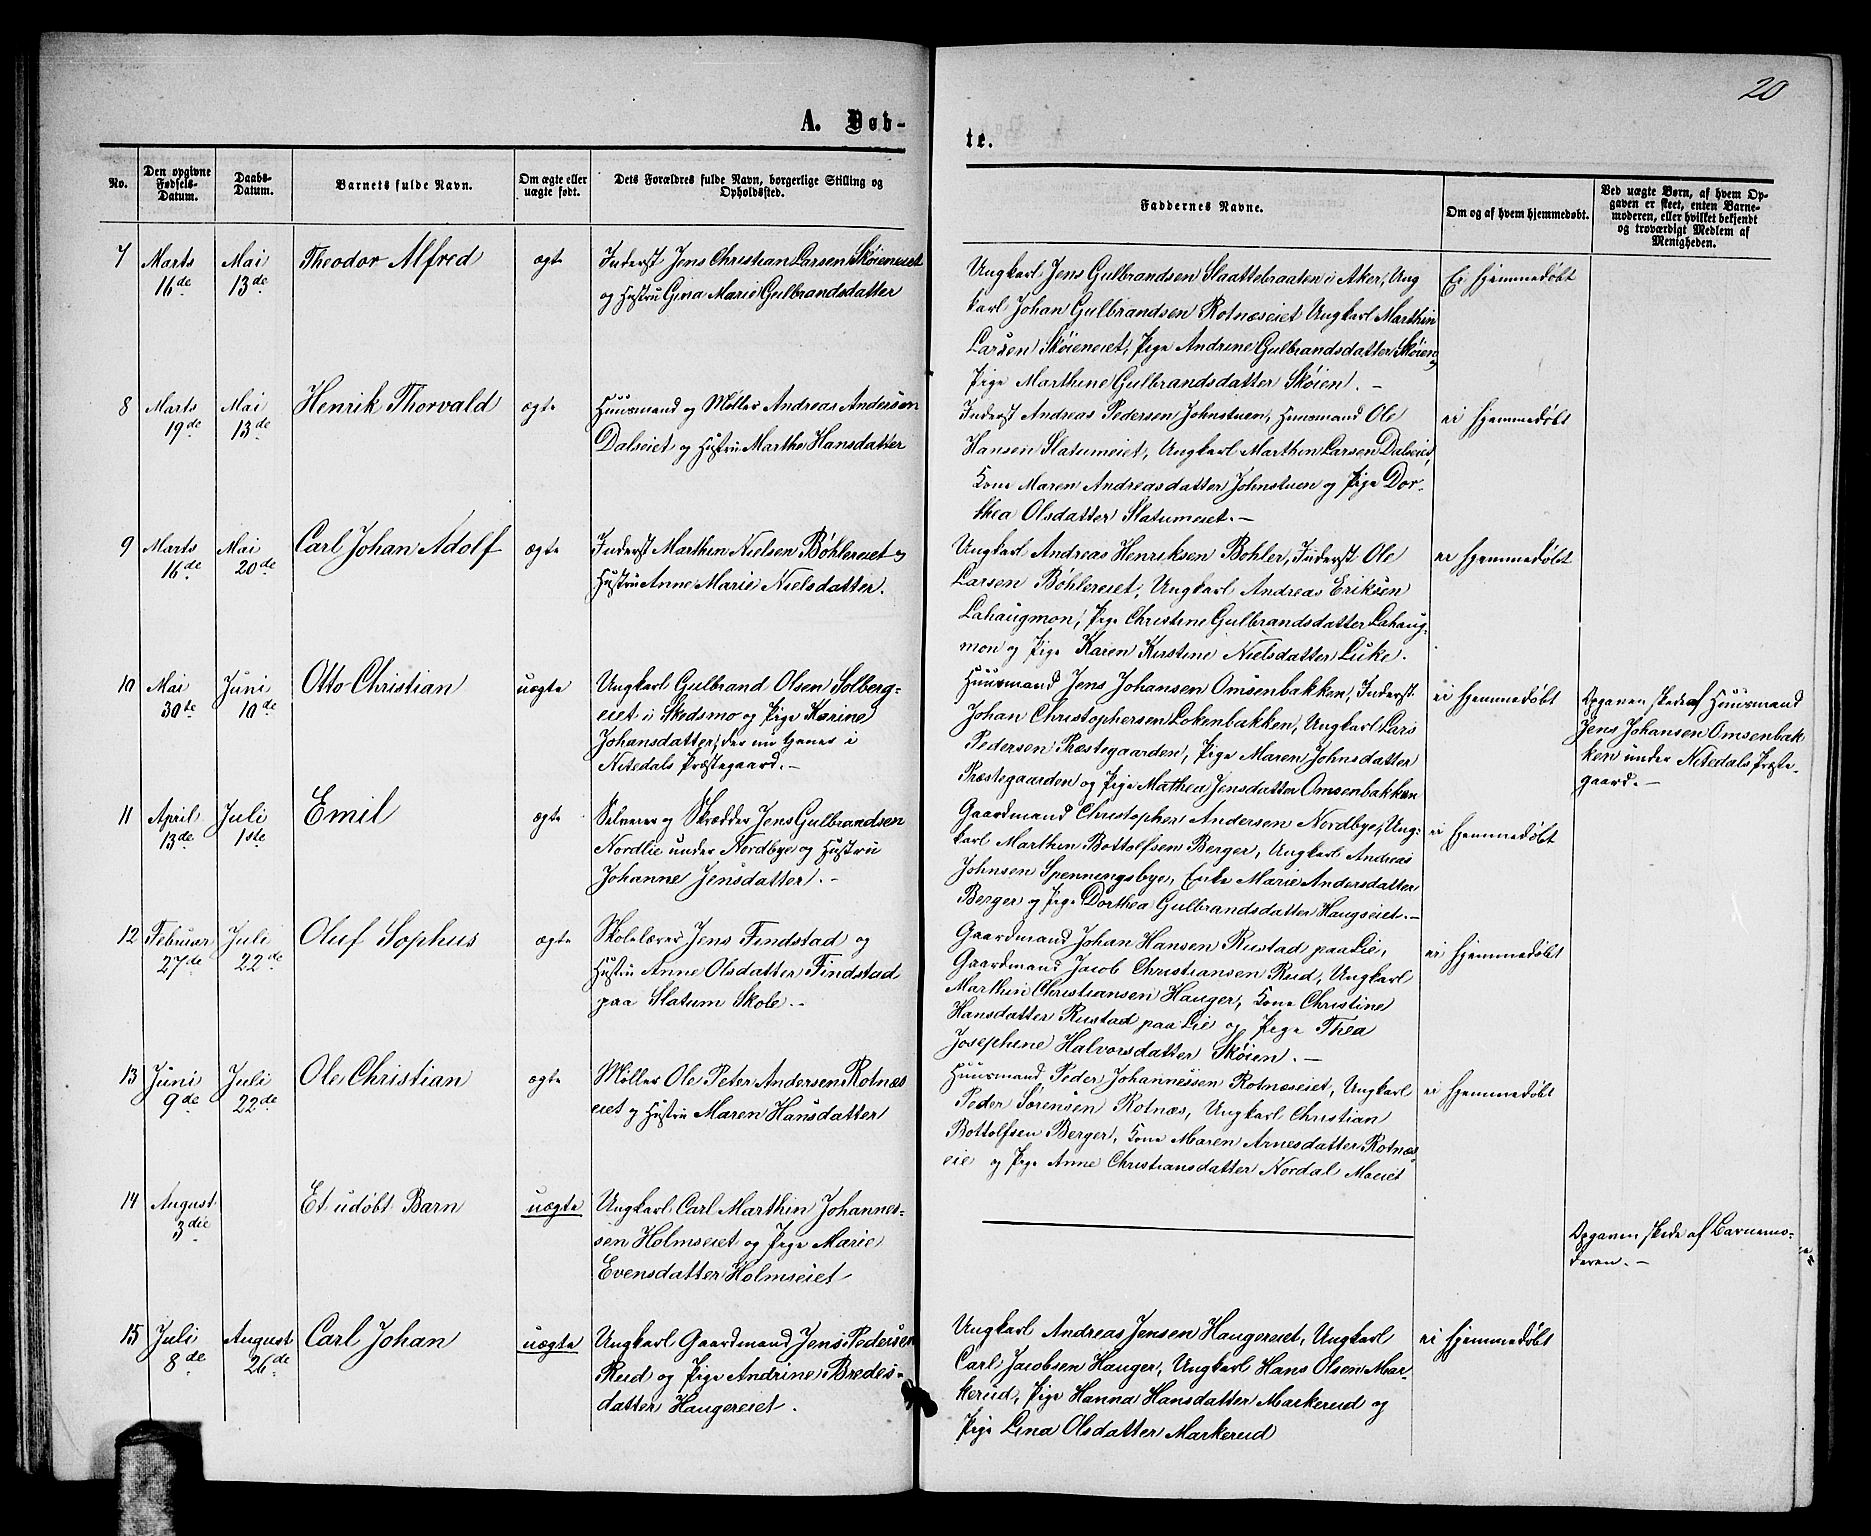 20
A. Døb-
te.
No.
Den opgivne Fødsels-Datum.
Daabs-Datum.
Barnets fulde Navn.
Om ægte eller uægte født.
Dets Forældres fulde Navn, borgerlige Stilling og Opholdssted.
Faddernes Navne.
Om og af hvem hjemmedøbt.
Ved uægte Børn, af hvem Op-
gaven er skeet, enten Barne-
moderen, eller hvilket bekjendt
og troværdigt Medlem af
Menigheden.
7 Marts 16de Mai 13de Theodor Alfred ægte
Inderst Jens Christian Larsen Skøieneiet
og Hustru Gina Marie Gulbrandsdatter
Ungkarl Jens Gulbrandsen Slaattebraaten i Aker, Ung
karl Johan Gulbrandsen Rotnæseiet Ungkarl Marthin
Larsen Skøieneiet, Pige Andrine Gulbrandsdatter Skøien og
Pige Marthine Gulbrandsdatter Skøien. -
Ei hjemmedøbt
8 Marts 19de Mai 13de Henrik Thorvald ægte
Huusmand og Møller Andreas Andersen
Dalseiet og Hustru Marthe Hansdatter
Inderst Andreas Pedersen Johnstuen, Huusmand Ole
Hansen Slatumeiet, Ungkarl Marthin Larsen Dalseiet,
Kone Maren Andreasdatter Johnstuen og Pige Dor-
thea Olsdatter Slatumeiet. -
ei hjemmedøbt
9 Marts 16de Mai 20de Carl Johan Adolf ægte
Inderst Marthin Nielsen Bøhlereiet og
Hustru Anne Marie Nielsdatter.
Ungkarl Andreas Henriksen Bøhler, Inderst Ole
Larsen Bøhlereiet, Ungkarl Andreas Eriksen
Lahaugmon, Pige Christine Gulbrandsdatter Lahaug-
mon og Pige Karen Kirstine Nielsdatter Luke.
ei hjemmedøbt
10 Mai 30te Juni 10de Otto Christian uægte
Ungkarl Gulbrand Olsen Solberg-
eiet i Skedsmo og Pige Karine
Johansdatter, der nu tjener i
Nitedals Præstegaard. -
Huusmand Jens Johansen Omsenbakken, Inderst
Johan Christophersen Løkenbakken, Ungkarl Lars
Pedersen Præstegaarden, Pige Maren Johnsdatter
Præstegaarden og Pige Mathea Jensdatter Omsenbakken
ei hjemmedøbt
Opgaven skede af Huusmand
Jens Johansen Omsenbak
ken under Nitedals Præste-
gaard. -
11 April 13de Juli 1ste Emil ægte
Selveier og Skrædder Jens Gulbrandsen
Nordlie under Nordbye og Hustru
Johanne Jensdatter. -
Gaardmand Christopher Andersen Nordbye, Ung-
karl Marthin Bottolfsen Berger, Ungkarl Andreas
Johnsen Spenningsbye, Enke Marie Andersdatter
Berger og Pige Dorthea Gulbrandsdatter Haugseiet. -
ei hjemmedøbt
12 Februar 27de Juli 22de Oluf Sophus ægte
Skolelærer Jens Findstad og
Hustru Anne Olsdatter Findstad
paa Slatum Skole. -
Gaardmand Johan Hansen Rustad paa Lie,
Gaardmand Jacob Christiansen Rud, Ungkarl
Marthin Christiansen Hauger, Kone Christine
Hansdatter Rustad paa Lie og Pige Thea
Josephine Halvorsdatter Skøien. -
ei hjemmedøbt
13 Juni 9de Juli 22de Ole Christian ægte
Møller Ole Peter Andersen Rotnæs
eiet og Hustru Maren Hansdatter
Huusmand Peder Johannessen Rotnæseiet, Ungkarl
Peder Sørensen Rotnæs, Ungkarl Christian
Bottolfsen Berger, Kone Maren Arnesdatter Rotnæs
eie og Pige Anne Christiansdatter Nordal Moeiet
ei hjemmedøbt
14 August 3die Et udøbt Barn uægte
Ungkarl Carl Marthin Johannes-
sen Holmseiet og Pige Marie
Evensdatter Holmseiet
Opgaven skede af Barnemo-
deren. -
15 Juli 8de August 26de Carl Johan uægte
Ungkarl Gaardmand Jens Pedersen
Rud og Pige Andrine Bredes-
datter Haugereiet.
Ungkarl Andreas Jensen Haugereiet, Ungkarl
Carl Jacobsen Hauger, Ungkarl Hans Olsen Mar-
kerud, Pige Hanna Hansdatter Markerud og
Pige Lina Olsdatter Markerud
ei hjemmedøbt